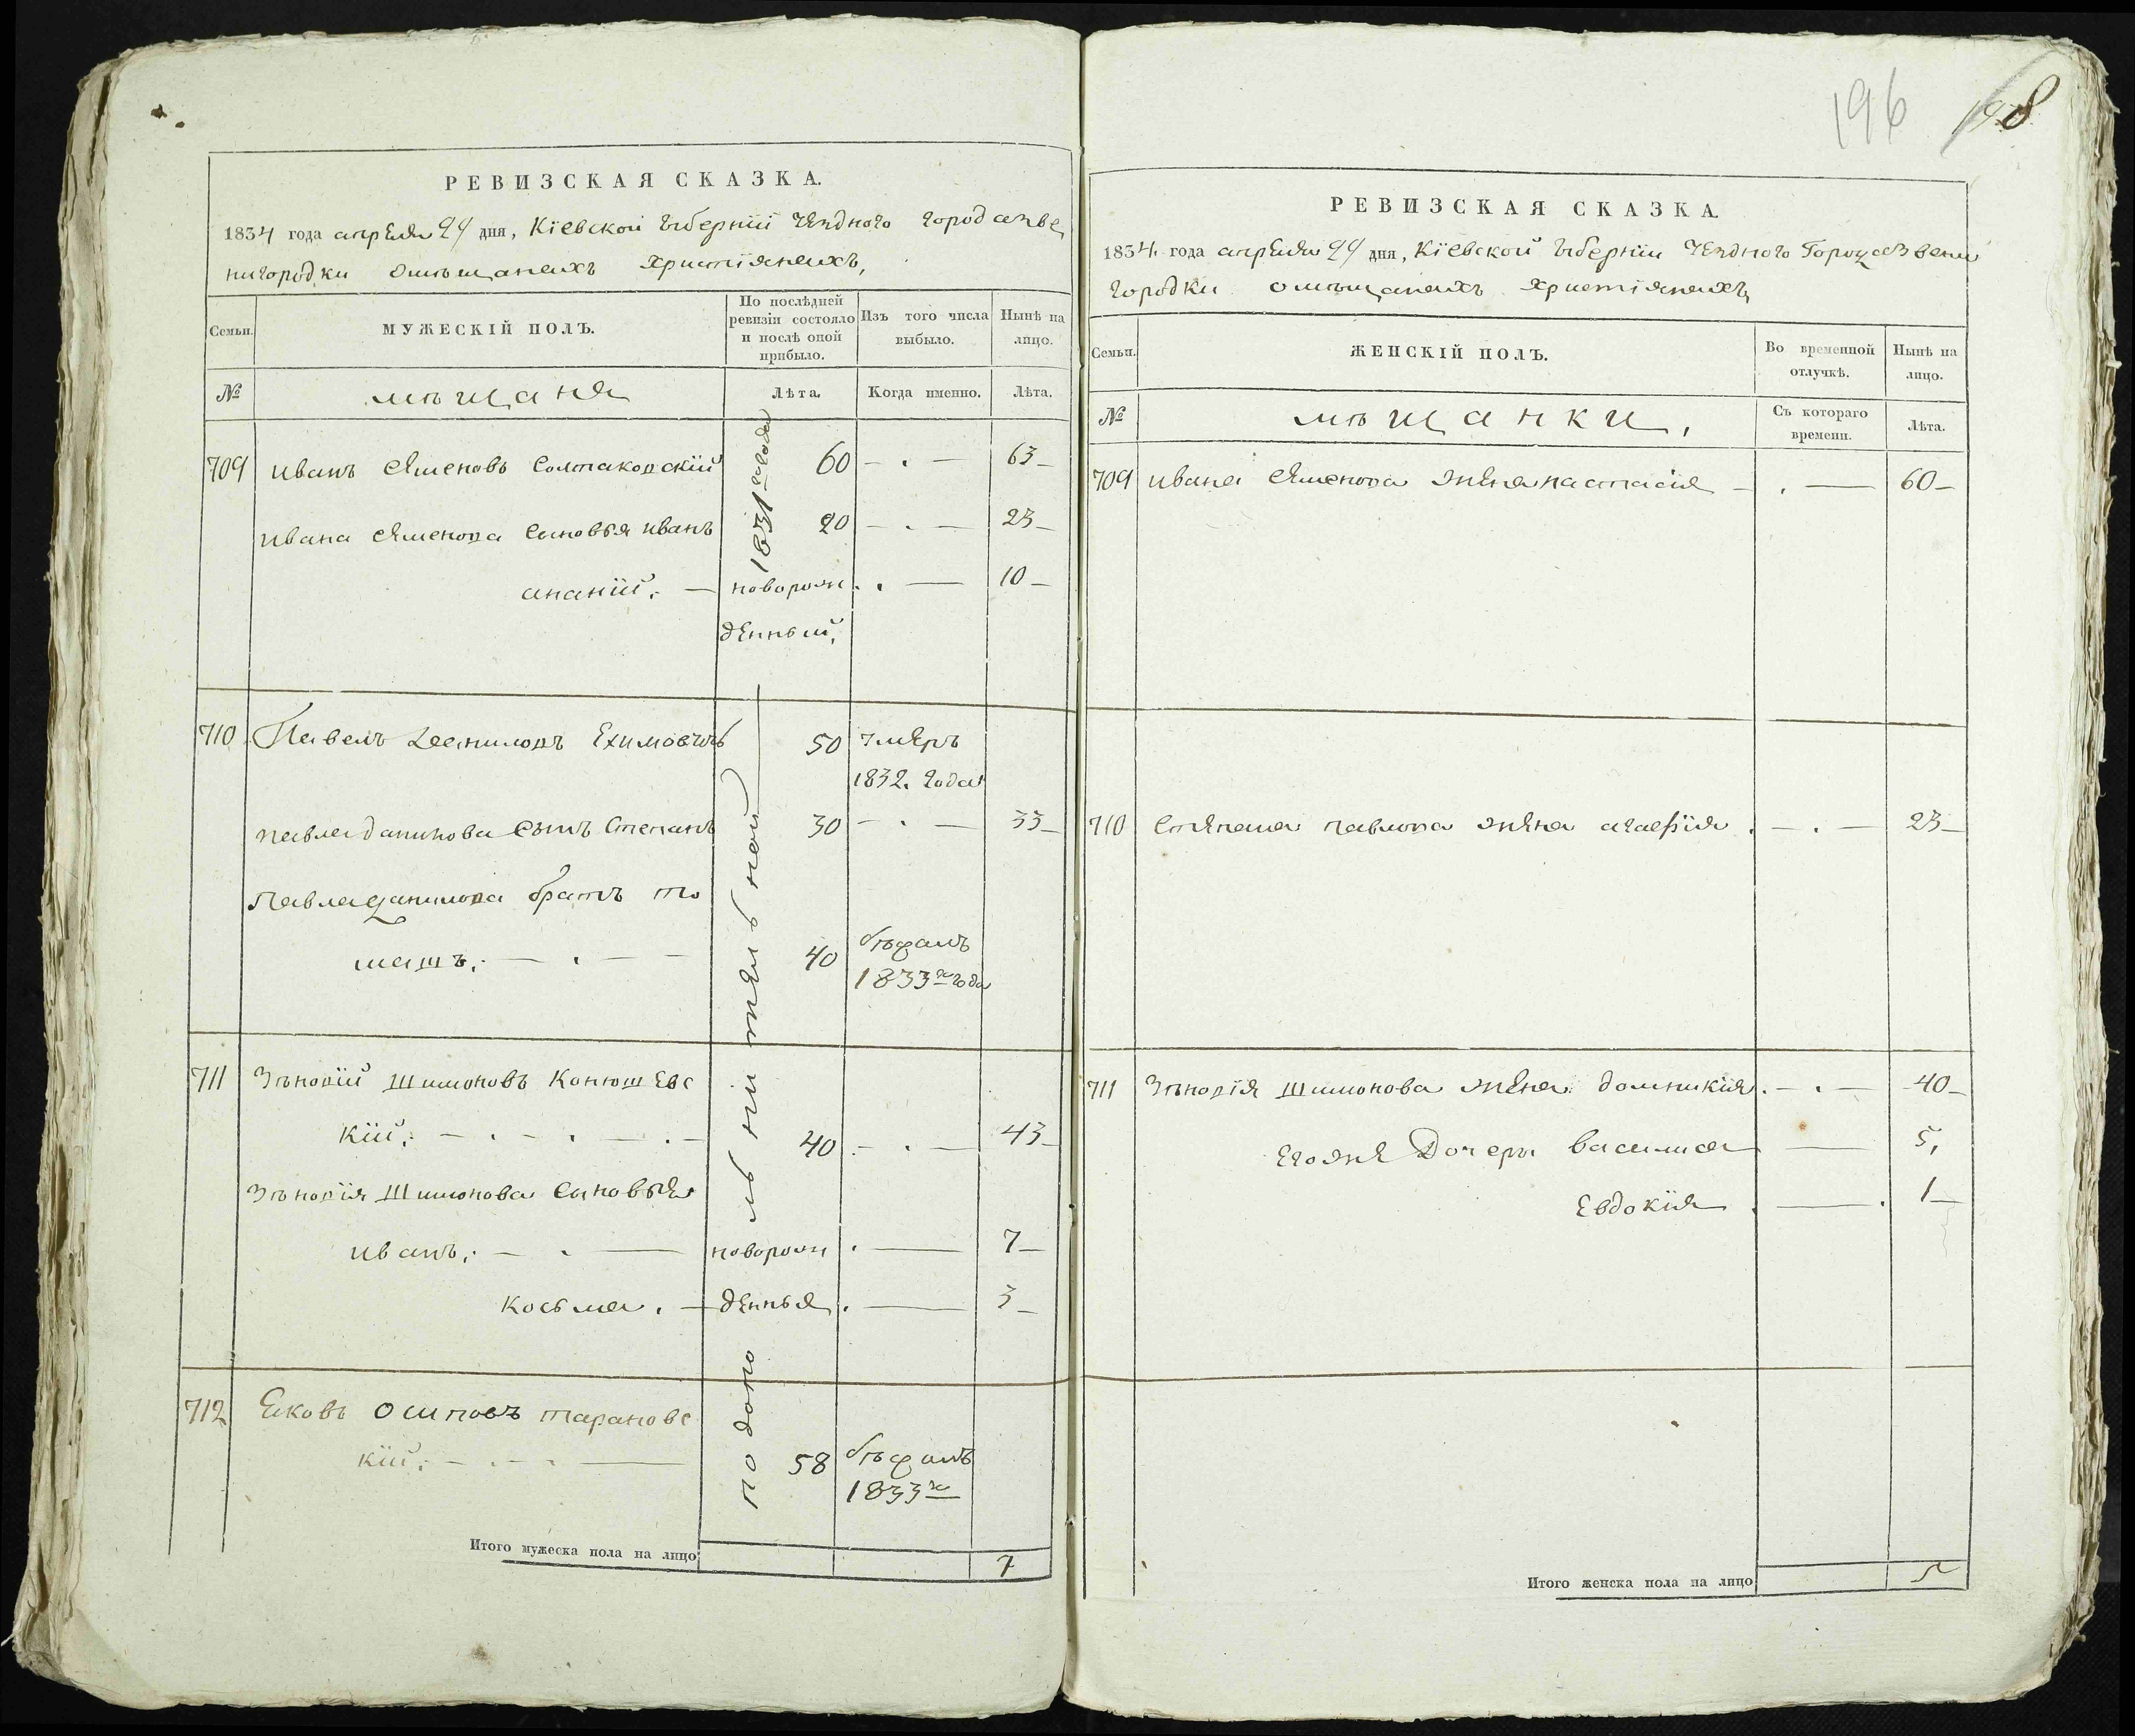 196 198
РЕВИЗСКАЯ СКАЗКА.
1834 года апреля 24 дня, Кіевской губерніи уездного города зве
нигородки омещанахъ христіянахъ,
Семьи.
МУЖЕСКІЙ ПОЛЪ.
По послѣдней ревизіи состояло и послѣ оной прибыло.
Изъ того числа выбыло.
Нынѣ на лицо.
№
мѣщаня
Лѣта.
Когда именно.
Лѣта.
1831го года
по дополнительной
709 иванъ семеновъ 60 — . — 63 —
ивана семенова сыновья иванъ 20 — . — 23 —
ананій. —новорож . — 10 —
денный,
710 Павелъ даниловъ Ехимовичъ 50 умеръ
1832. года
павла данилова сынъ степанъ 30 — . — 33 —
павла данилова брат то
машъ. — . — — 40 бѣжалъ
1833го года
711 Зѣновій шимоновъ Конюшевс
кій. — . — . — . — 40 — . — 43 —
Зѣновія Шимонова сыновья
иванъ. — . — новорож . — 7 —
косьма. — денныя . — 3 —
712 Еаковъ осиповъ тарановс
кій. — . — . — 58 бѣжалъ
1833го
Итого мужеска пола на лицо 7
РЕВИЗСКАЯ СКАЗКА.
1834. года апреля 24 дня, Кіевской губерніи уездного города звени
городки омещанахъ христіянахъ,
Семьи.
ЖЕНСКІЙ ПОЛЪ.
Во временной отлучкѣ.
Нынѣ на лицо.
№
мѣщанки,
Съ котораго времени.
Лѣта.
709 ивана семенова жена настасія — . — 60 —
710 степана павлова жена агафія . — . — 23 —
711 Зѣновія шимонова жена домникія . — . — 40 —
егоже дочери василиса — 5,
Евдокія . — . 1 —
Итого женска пола на лицо 5